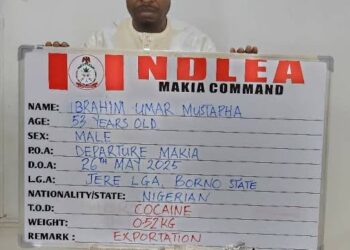 NDLEA
MAKIA COMMAND
NAME: IBRAHIM UMAR MUSTAPHA
AGE: 53 YEARS OLD
SEX: MALE
P.O.A: DEPARTURE MAKIA
D.O.A: 26TH MAY 2025
L.G.A: JERE LGA, BORNO STATE
NATIONALITY/STATE: NIGERIAN
T.O.D: COCAINE
WEIGHT: 0.52KG
REMARK: EXPORTATION